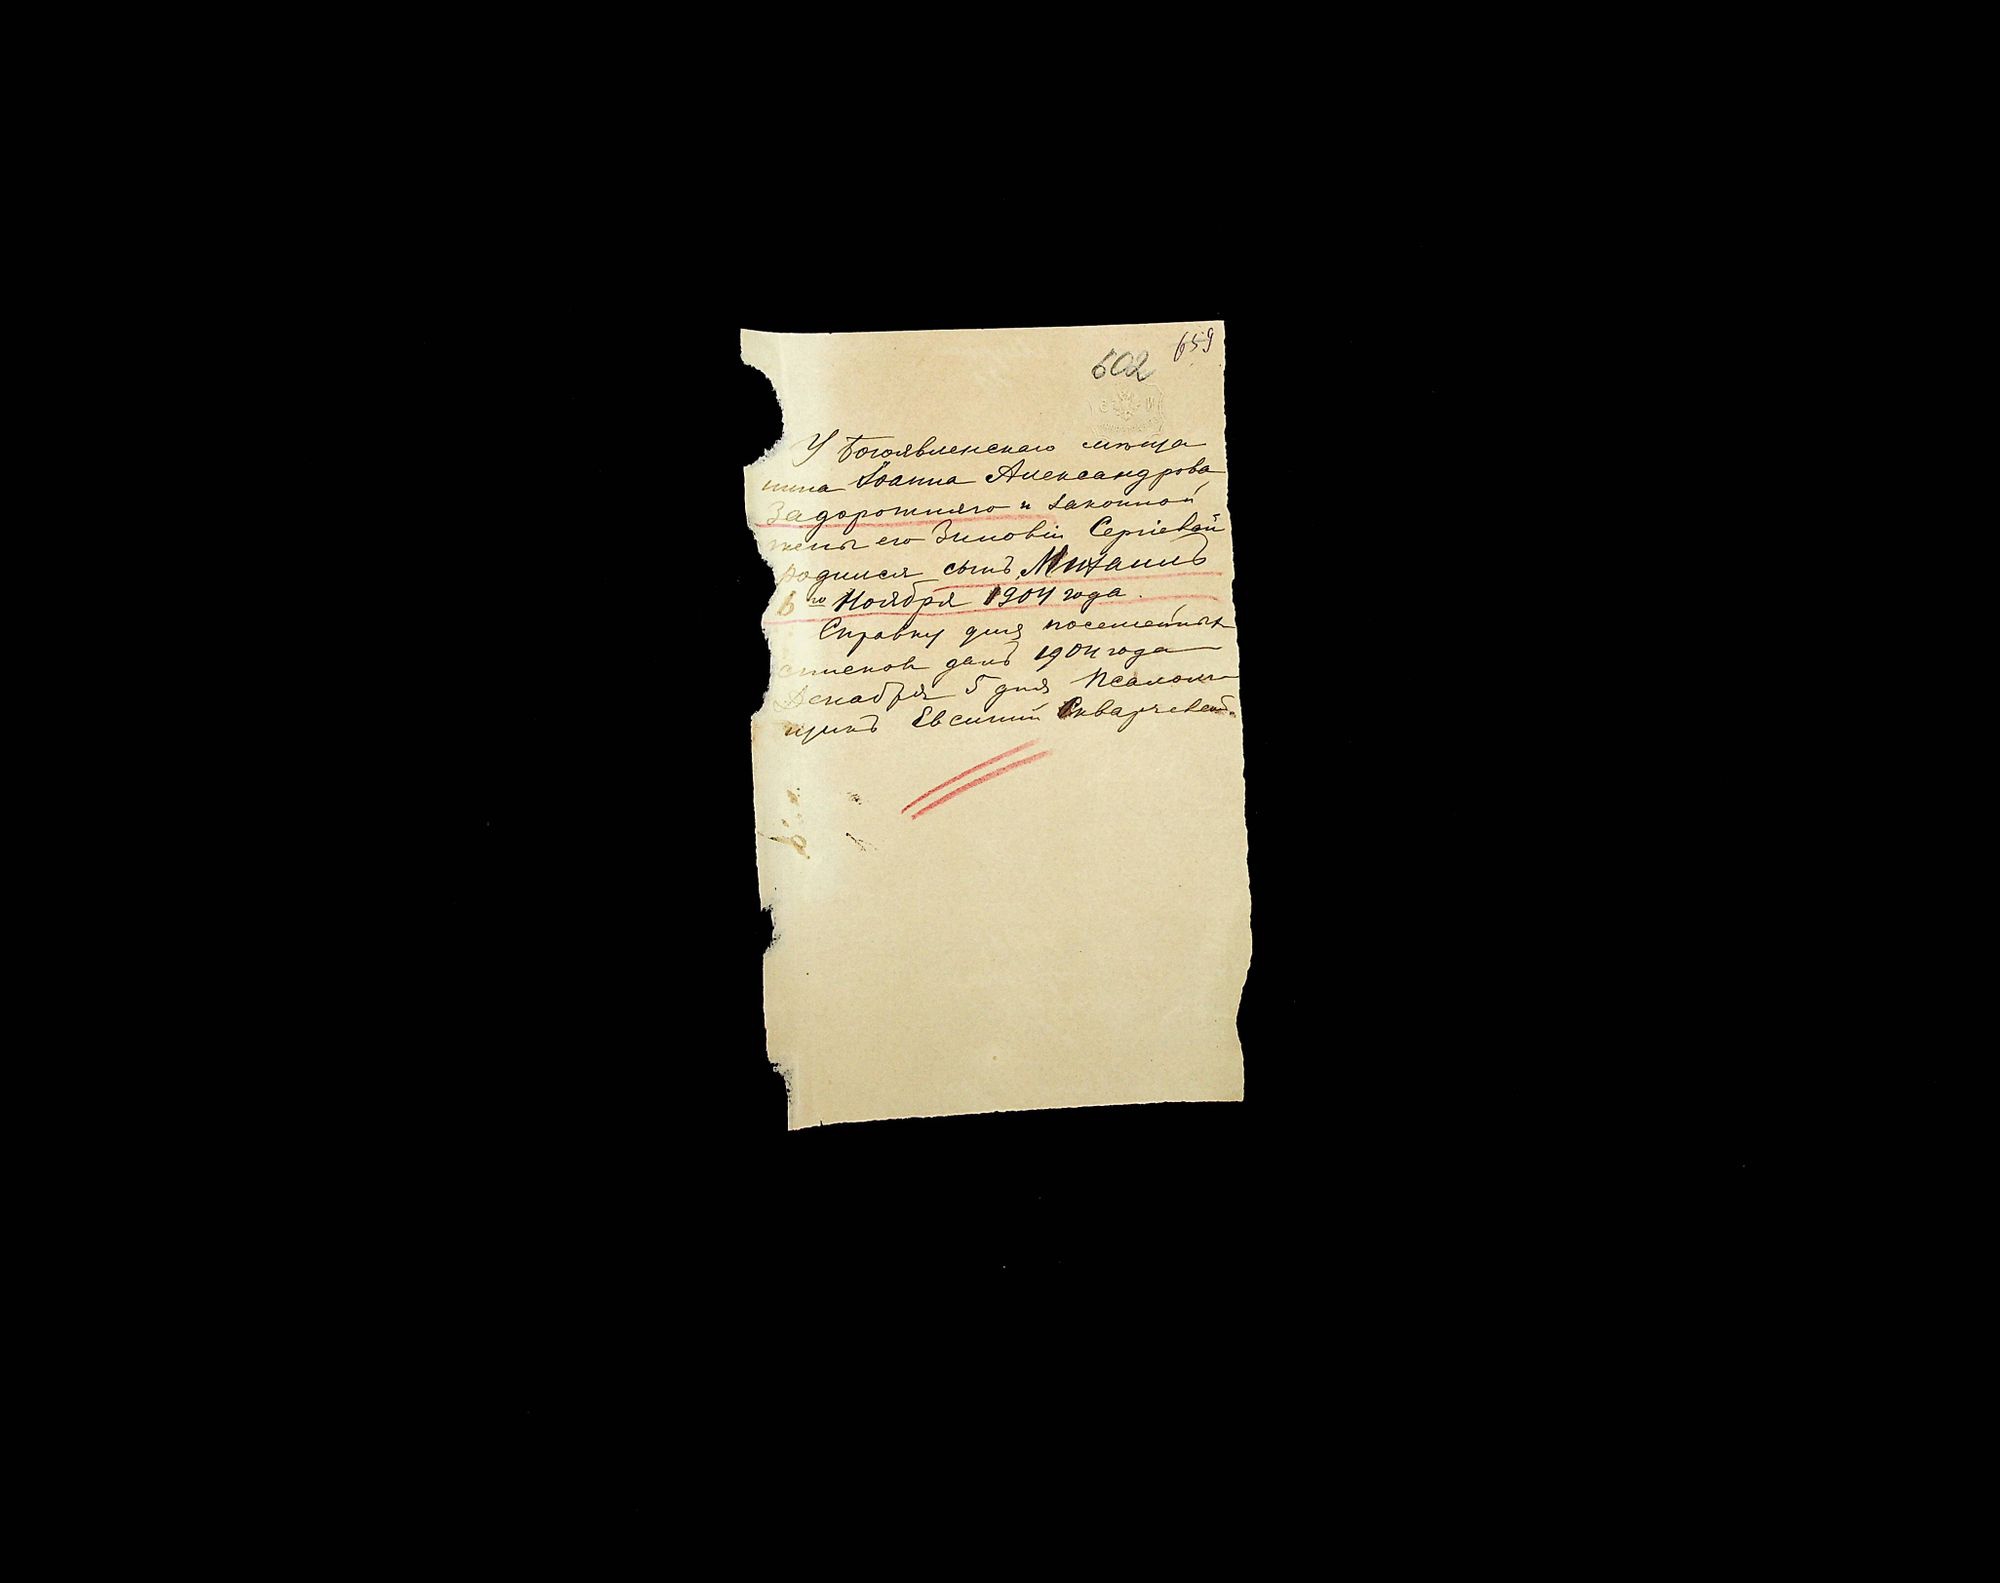 659
602
У Богоявленскаго мѣща
нина Іоанна Александрова
Задорожняго и законной
жены его Зиновіи Сергіевой
родился сынъ Михаилъ
6го Ноября 1904 года.
Справку для посемейныхъ
списковъ далъ 1904 года
Декабря 5 дня Псалом
щикъ Евсигній Скварчевскій.